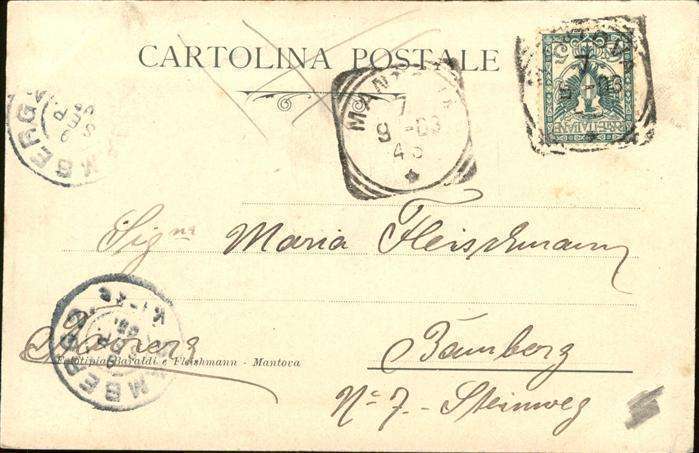 CARTOLINA POSTALE
MANTOVA
7
9 - 03
4 S
Sig.na Maria Fleischmann
Baviera
Fototipia Baraldi e Fleishmann - Mantova
Bamberg
No 7. - Steinweg